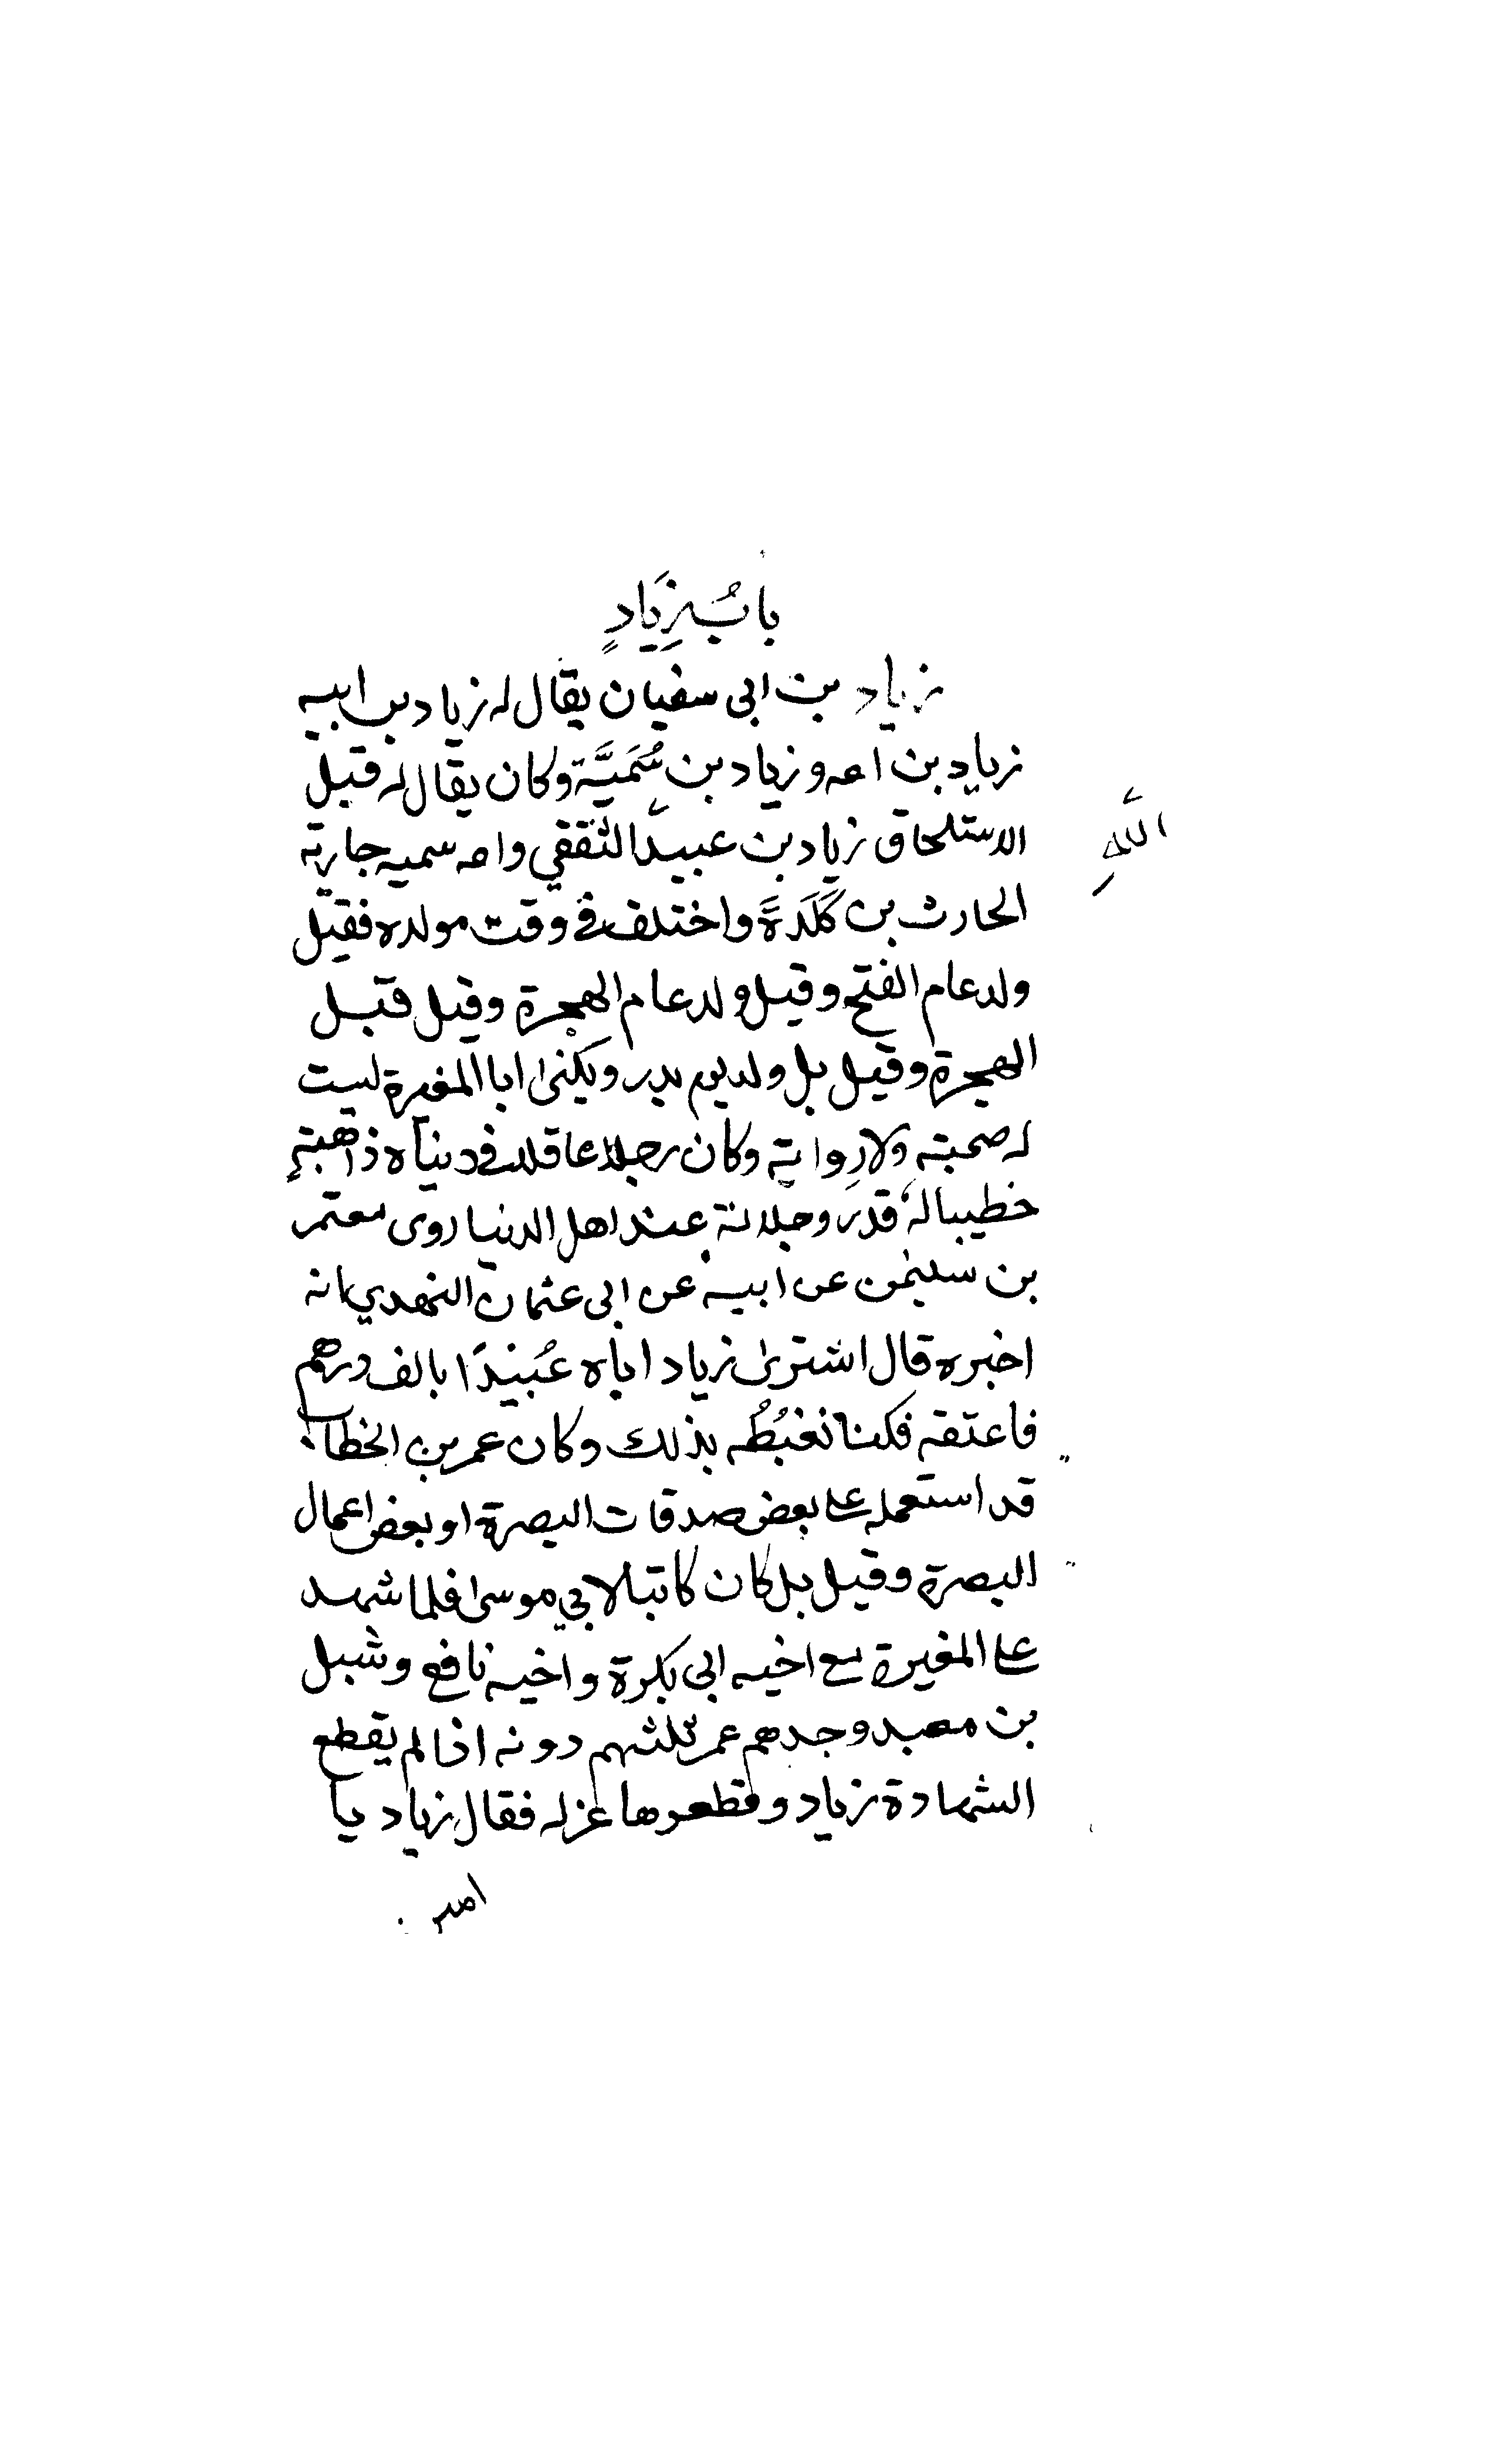 بابُ زِيَادٍ
زياد بن ابى سفيان يقال له زياد بن ابيه
زياد بن امه وزياد بن سُمَيَّة وكان يقال له قبل
الاستلحاق زياد بن عبيد الثقفي وامه سميه جارية
الحارث بن كَلَدَةَ واختلف في وقت مولده فقيل
ولد عام الفتح وقيل ولد عام الهجرة وقيل قبل
الهجرة وقيل بل ولد يوم بدر ويكنى ابا المغيرة ليست
له صحبة ولا رواية وكان رجلا عاقلا في دنياه ذاهبة
خطيبا له قدر وجلالة عند اهل الدنيا روى معتمر
بن سليمن عن ابيه عن ابى عثمان النهدي انه
اخبره قال اشترى زياد اباه عُبَيْدًا بالف درهم
فاعتقه فكنا نغبُطُه بذلك وكان عمر بن الخطاب
قد استعمله على بعض صدقات البصرة او بعض اعمال
البصرة وقيل بل كان كاتبا لابي موسى فلما شهد
على المغيرة مع اخيه ابى بكرة واخيه نافع وشبل
بن معبد وجدهم عمر ثلثتهم دونه اذا لم يقطع
الشهادة زياد وقطعوها عزله فقال زياد يا
امير